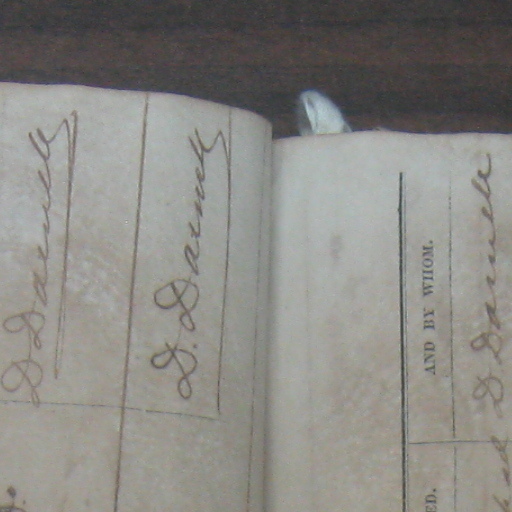 D Darnell
D. Darnell
ED.
AND BY WHOM.
D Darnell